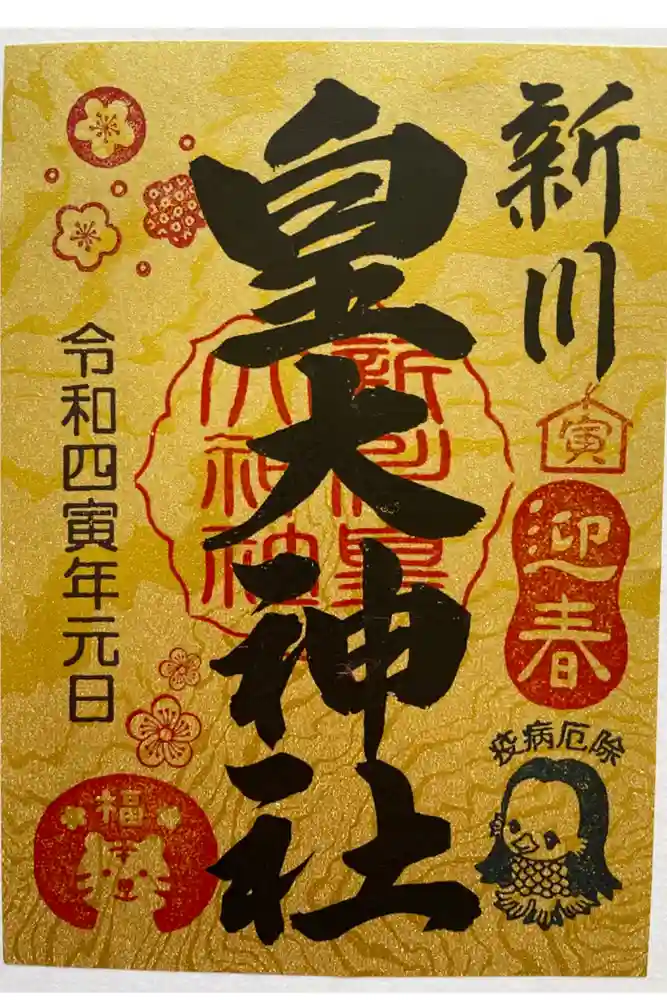 新川
寅
迎春
疫病厄除
皇大神社
新川皇
大神社
令和四寅年元日
福